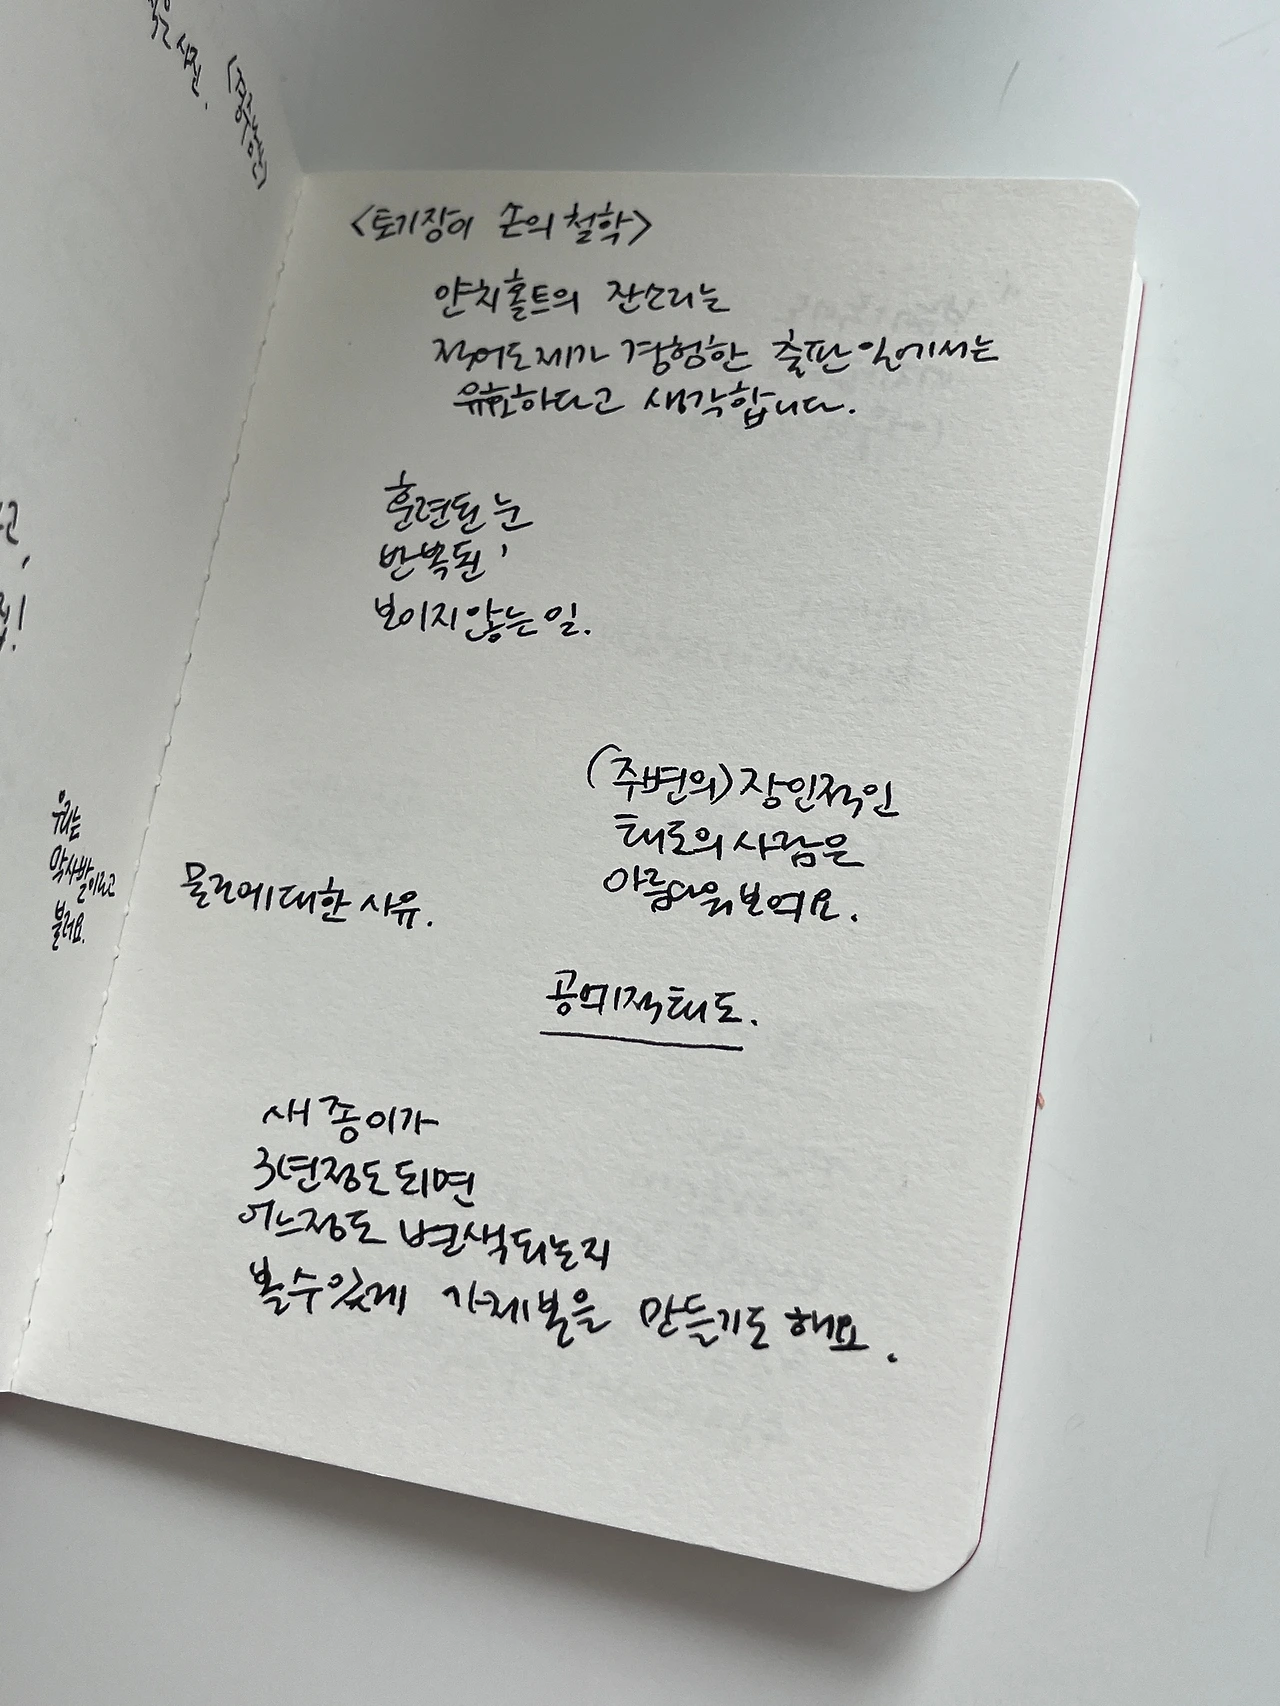 사진.
<토기장이 손의 철학>
얀치홀트의 잔소리는
적어도 제가 경험한 출판 일에서는
유효하다고 생각합니다.
훈련된 눈
반복된 '
보이지 않는 일.
(주변의) 장인적인
태도의 사람은
아름다워 보여요.
우리는
막사발이라고
불러요.
물건에 대한 사유.
공예적 태도.
새 종이가
3년정도 되면
어느정도 변색되는지
볼 수 있게 가제본을 만들기도 해요.